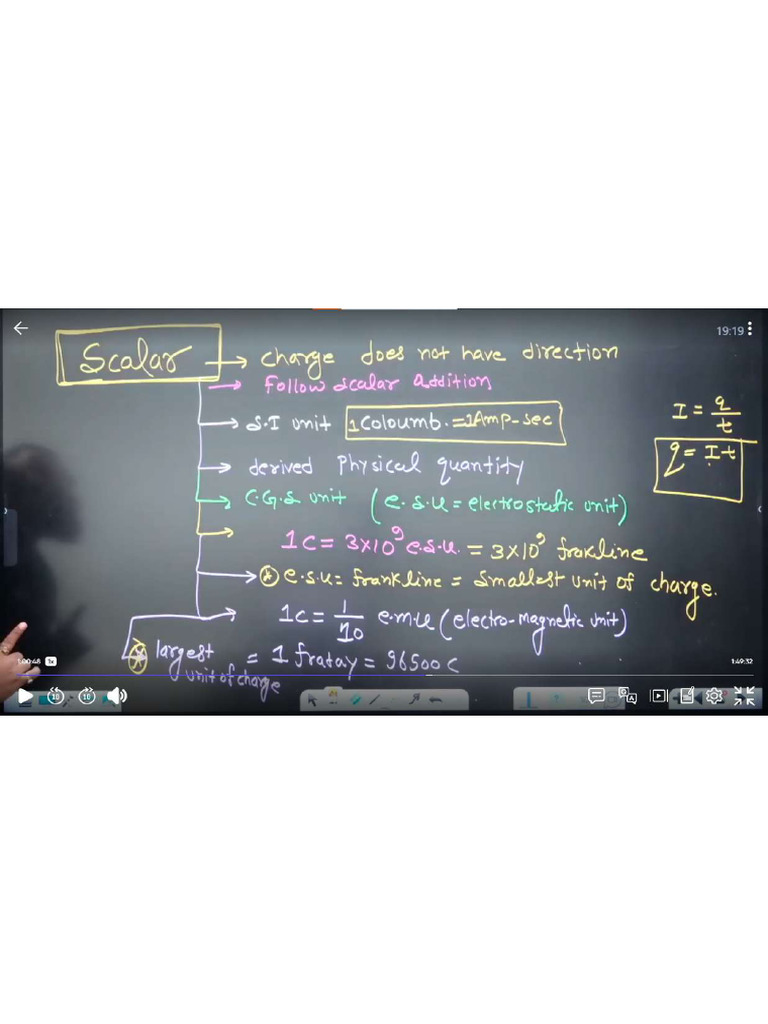 19:19
Scalar → charge does not have direction
→ follow scalar addition
→ S.I unit 1 Coloumb. = 1 Amp-sec
I = q/t
q = It
→ derived Physical quantity
→ C.G.S unit (e.s.u = electrostatic unit)
→ 1C = 3×10⁹ e.s.u. = 3×10⁹ frakline
→ e.s.u = frankline = Smallest unit of charge.
→ 1C = 1/10 e.m.u (electro-magnetic unit)
largest unit of charge = 1 fratay = 96500 C
1:00:48 1x
1:49:32
10 10